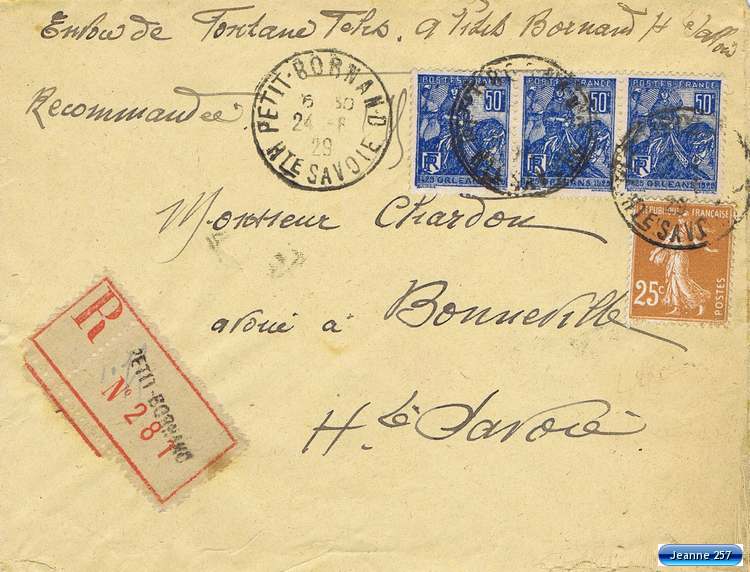 Envoi de Fontane Félix, à Petit Bornand Hte Savoie
Recommandée
PETIT-BORNAND
6 30
24 -8
29
HTE SAVOIE
POSTES FRANCE
50c
RF
1429 ORLEANS 1929
50c
RF
ORLEANS 1929
POSTES FRANCE
50c
RF
1429 ORLEANS 1929
HTE SAV
REPUBLIQUE FRANÇAISE
25c
POSTES
Monsieur Chardon
avoué à Bonneville
Hte Savoie
R
PETIT-BORNAND
No 281
Jeanne 257